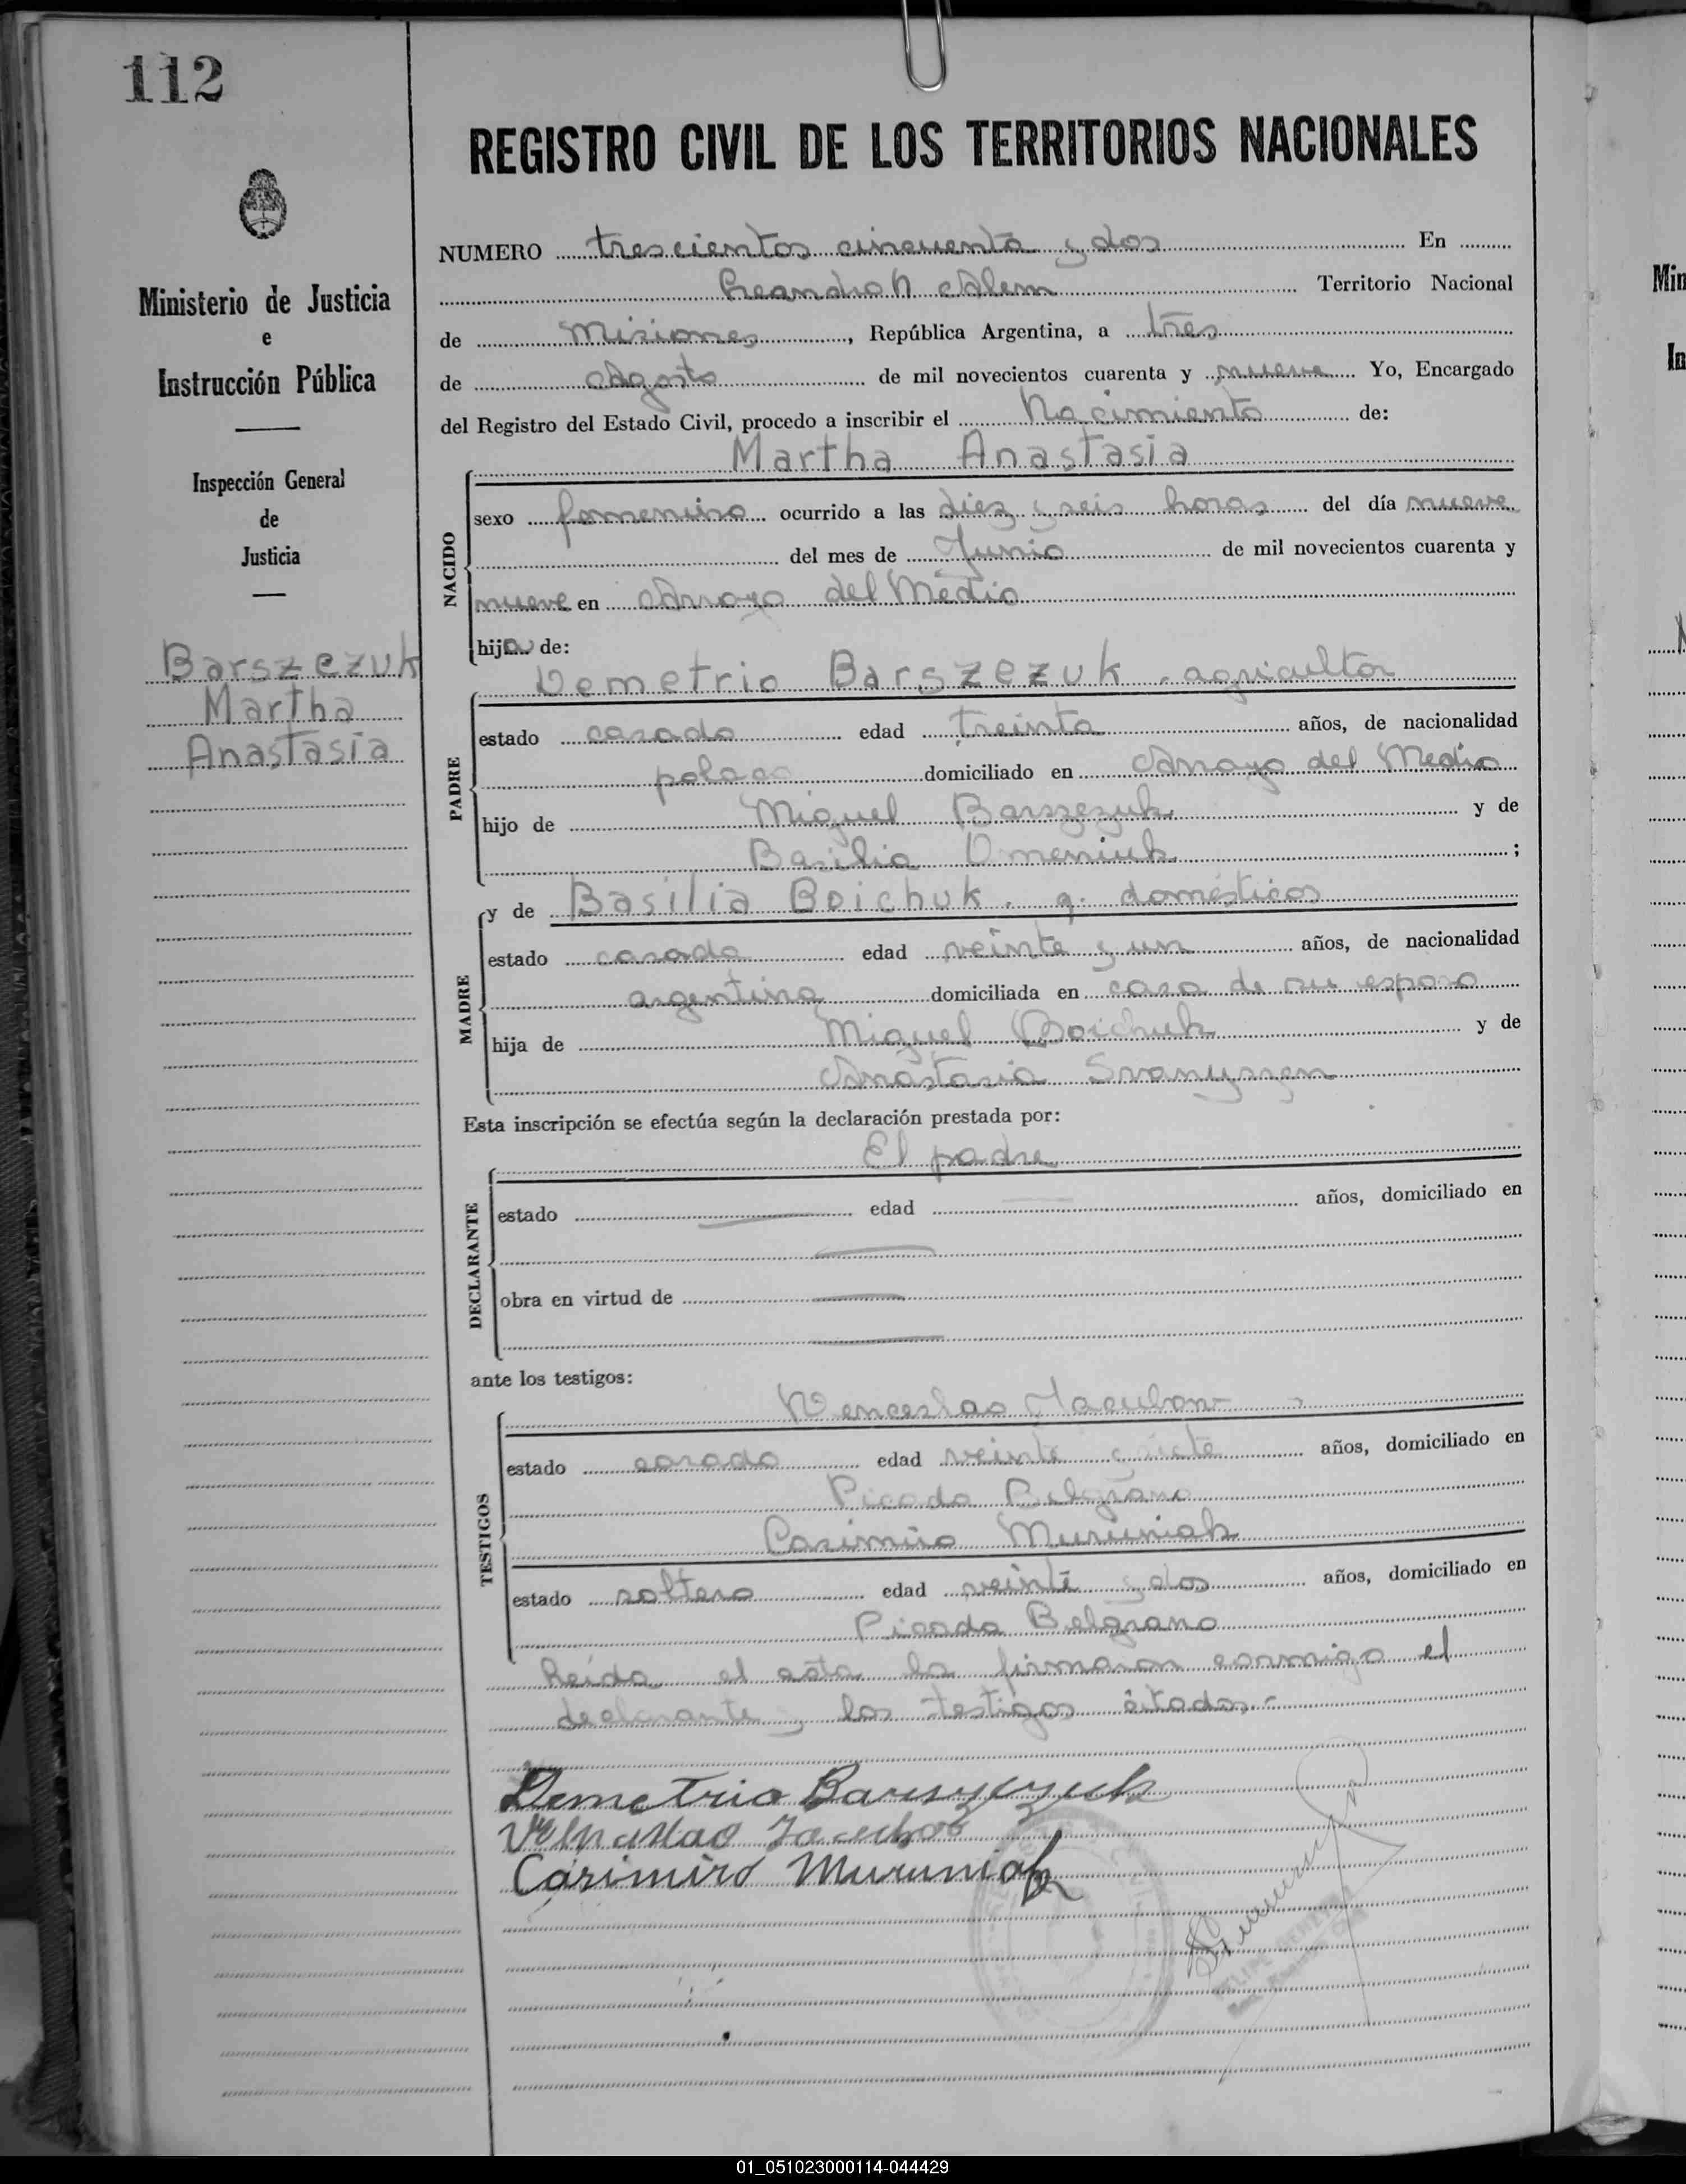 112
REGISTRO CIVIL DE LOS TERRITORIOS NACIONALES
Ministerio de Justicia
e
Instrucción Pública
Inspección General
de
Justicia
Barszezuk
Martha
Anastasia
NUMERO trescientos cincuenta y dos En
Leandro N Alem Territorio Nacional
de Misiones, República Argentina, a tres
de Agosto de mil novecientos cuarenta y nueve Yo, Encargado
del Registro del Estado Civil, procedo a inscribir el Nacimiento de:
Martha Anastasia
NACIDO
sexo femenino ocurrido a las diez y seis horas del día nueve
del mes de Junio de mil novecientos cuarenta y
nueve en Arroyo del Medio
hija de:
Demetrio Barszezuk - agricultor
PADRE
estado casado edad treinta años, de nacionalidad
polaco domiciliado en Arroyo del Medio
hijo de Miguel Barszezuk y de
Basilia Omeniuk ;
MADRE
y de Basilia Boichuk. q. domésticos
estado casada edad veinte y un años, de nacionalidad
argentina domiciliada en casa de su esposo
hija de Miguel Boichuk y de
Anastasia
Esta inscripción se efectúa según la declaración prestada por:
El padre
DECLARANTE
estado edad años, domiciliado en
obra en virtud de
ante los testigos:
Wenceslao
TESTIGOS
estado casado edad veinte y siete años, domiciliado en
Picada Belgrano
Casimiro Muruniak
estado soltero edad veinte y dos años, domiciliado en
Picada Belgrano
Leída el acta la firmaron conmigo el
declarante y los testigos citados.-
Demetrio Barszezuk
Casimiro Muruniak
01_051023000114-044429
Min
In